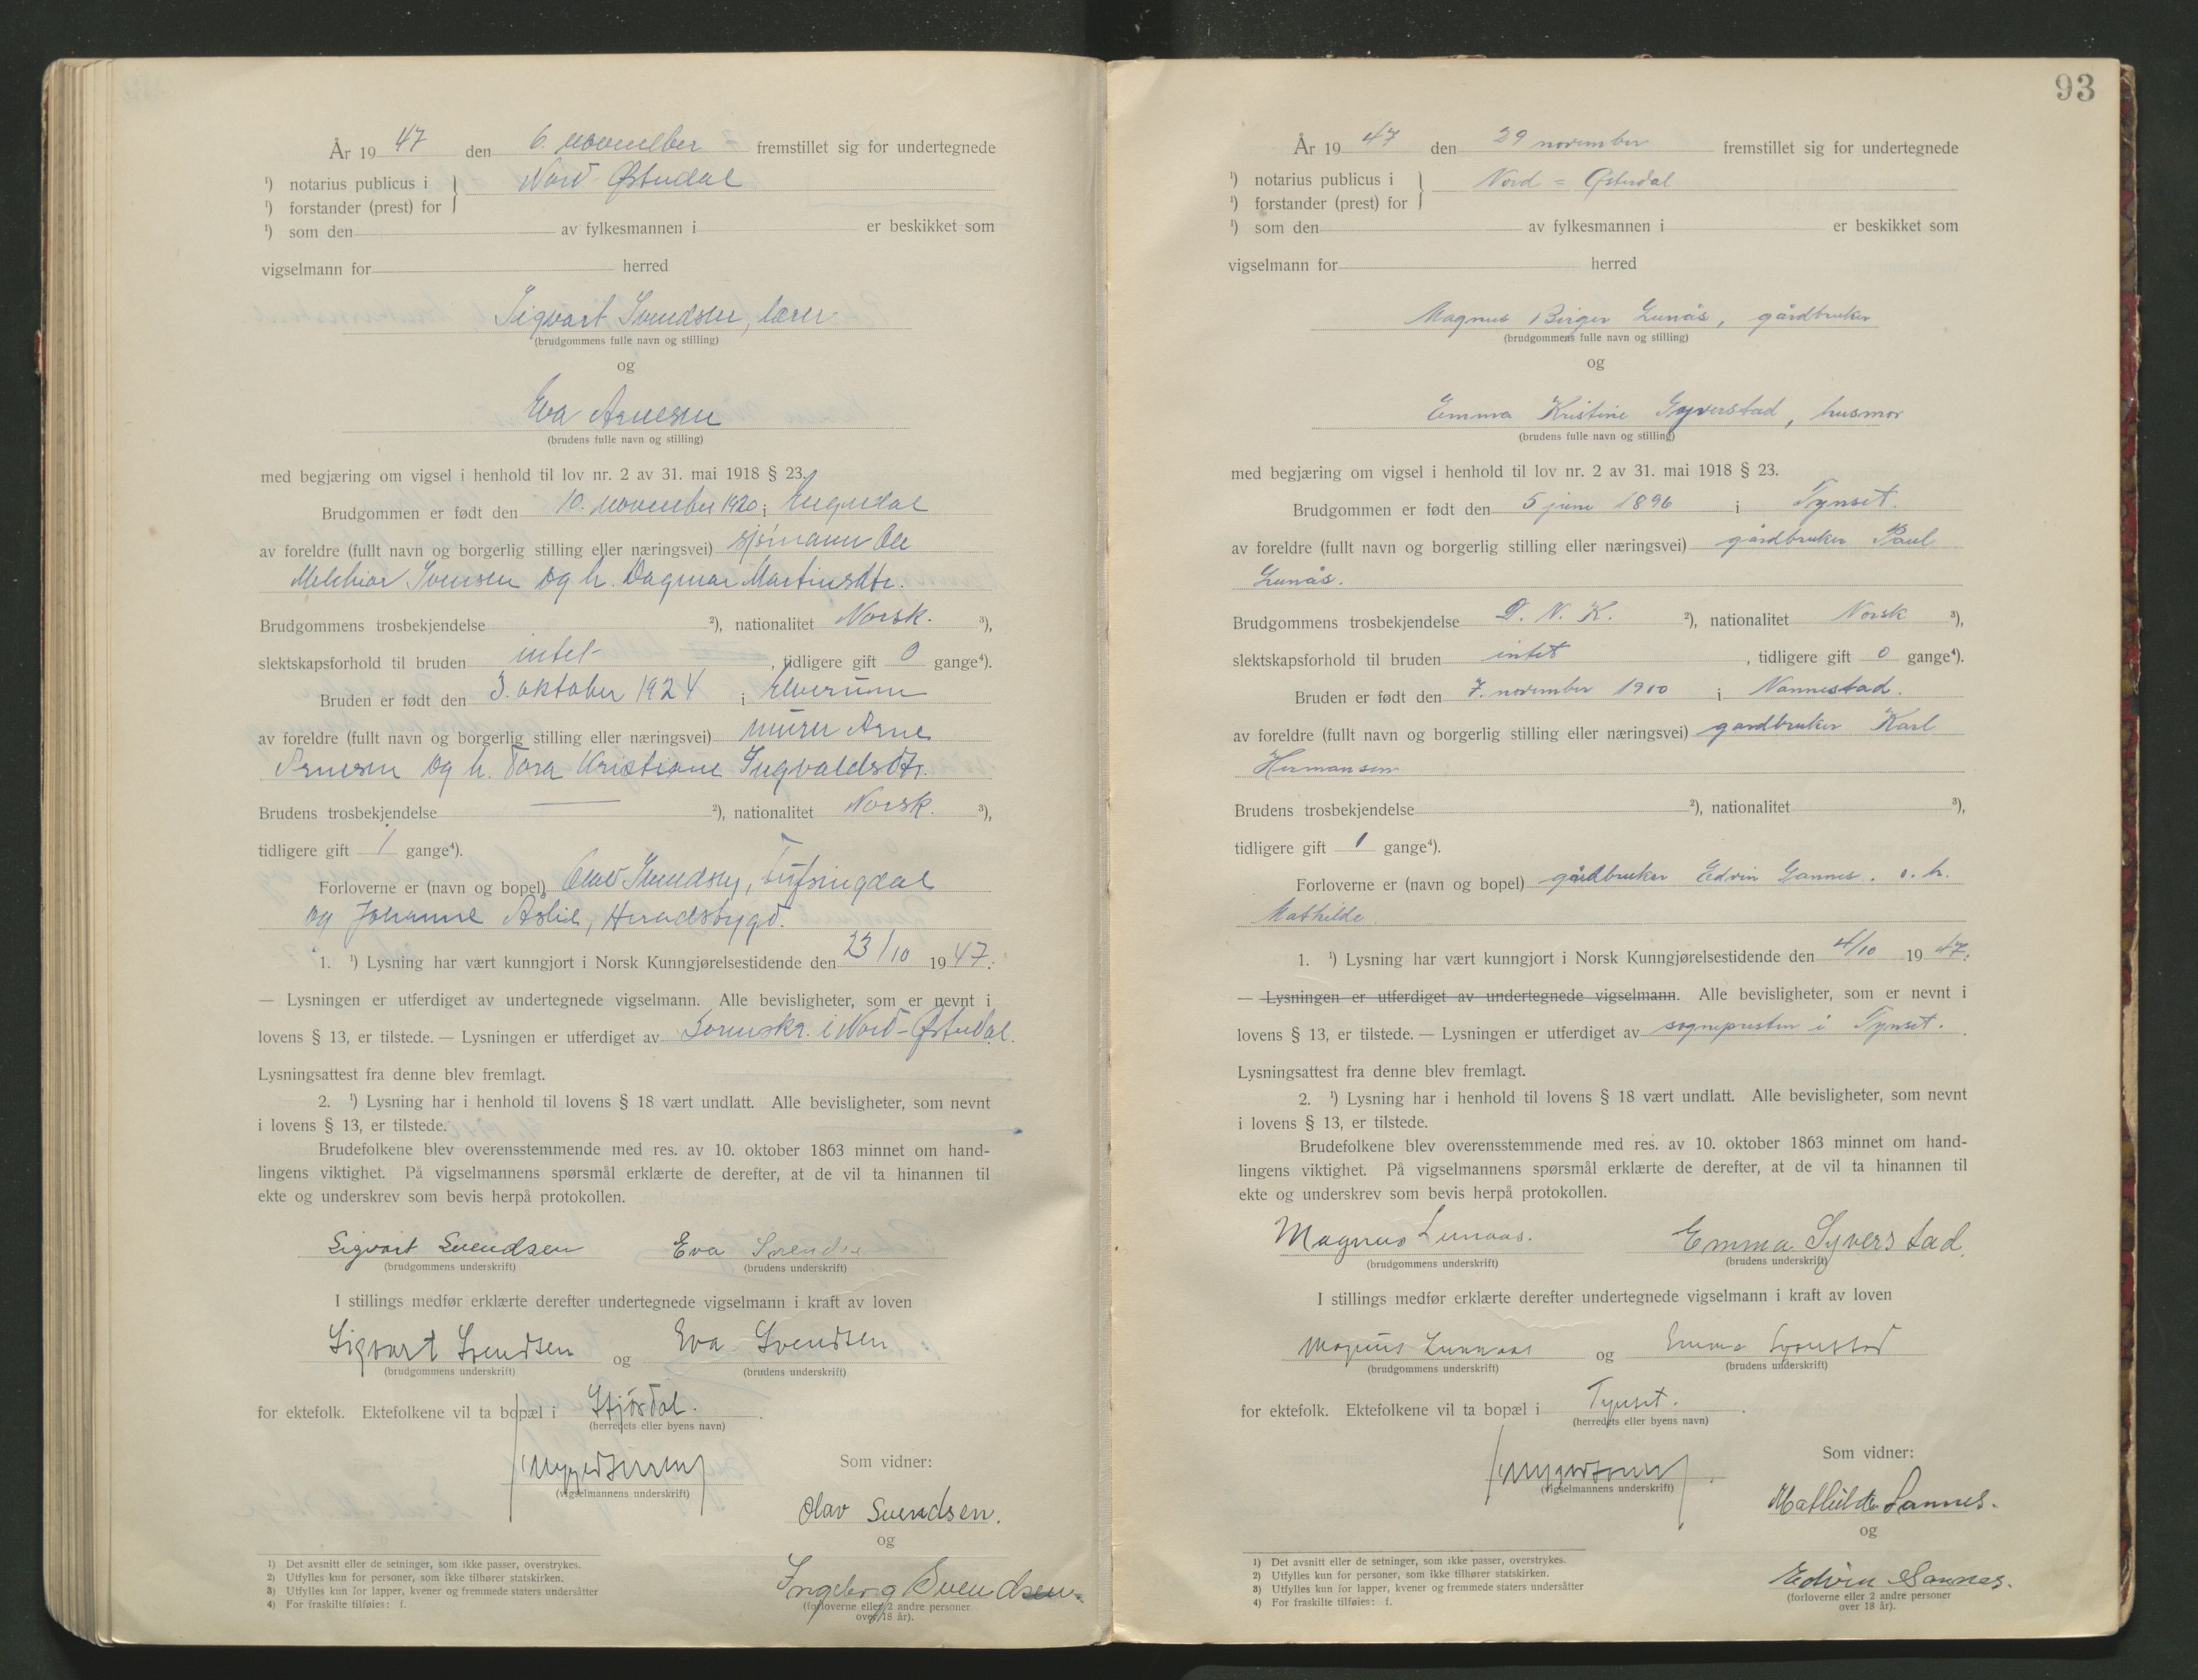 År 19 47 den 6. november fremstillet sig for undertegnede
¹) notarius publicus i } Nord-Østerdal
¹) forstander (prest) for
¹) som den av fylkesmannen i er beskikket som
vigselmann for herred
Sigvart Svendsen, lærer
(brudgommens fulle navn og stilling)
og
Eva Arnesen
(brudens fulle navn og stilling)
med begjæring om vigsel i henhold til lov nr. 2 av 31. mai 1918 § 23.
Brudgommen er født den 10. november 1920 i Engerdal
av foreldre (fullt navn og borgerlig stilling eller næringsvei) sjømann Ole
Melchior Svensen og h. Dagmar Martinsdtr.
Brudgommens trosbekjendelse ²), nationalitet Norsk. ³),
slektskapsforhold til bruden intet , tidligere gift 0 gange⁴).
Bruden er født den 3. oktober 1924 i Elverum
av foreldre (fullt navn og borgerlig stilling eller næringsvei) murer Arne
Arnesen og h. Tora Kristiane Ingvaldsdtr.
Brudens trosbekjendelse — ²), nationalitet Norsk. ³),
tidligere gift 1 gange⁴).
Forloverne er (navn og bopel) Olav Svendsen, Tufsingdal
og Johanne Aslie, Heradsbygd.
1. ¹) Lysning har vært kunngjort i Norsk Kunngjørelsestidende den 23/10 19 47.
— Lysningen er utferdiget av undertegnede vigselmann. Alle bevisligheter, som er nevnt i
lovens § 13, er tilstede. — Lysningen er utferdiget av Sorenskr. i Nord-Østerdal.
Lysningsattest fra denne blev fremlagt.
2. ¹) Lysning har i henhold til lovens § 18 vært undlatt. Alle bevisligheter, som nevnt
i lovens § 13, er tilstede.
Brudefolkene blev overensstemmende med res. av 10. oktober 1863 minnet om hand-
lingens viktighet. På vigselmannens spørsmål erklærte de derefter, at de vil ta hinannen til
ekte og underskrev som bevis herpå protokollen.
Sigvart Svendsen Eva Svendsen
(brudgommens underskrift) (brudens underskrift)
I stillings medfør erklærte derefter undertegnede vigselmann i kraft av loven
Sigvart Svendsen og Eva Svendsen
(brudgommens underskrift) (brudens underskrift)
for ektefolk. Ektefolkene vil ta bopæl i Stjørdal.
(herredets eller byens navn)
Som vidner:
(vigselmannens underskrift)
Olav Svendsen.
og
Ingeborg Svendsen.
(forloverne eller 2 andre personer
over 18 år).
1) Det avsnitt eller de setninger, som ikke passer, overstrykes.
2) Utfylles kun for personer, som ikke tilhører statskirken.
3) Utfylles kun for lapper, kvener og fremmede staters undersåtter
4) For fraskilte tilføies: f.
93
År 19 47 den 29 november fremstillet sig for undertegnede
¹) notarius publicus i } Nord = Østerdal
¹) forstander (prest) for
¹) som den av fylkesmannen i er beskikket som
vigselmann for herred
Magnus Birger Lunås, gårdbruker
(brudgommens fulle navn og stilling)
og
Emma Kristine Syverstad, husmor
(brudens fulle navn og stilling)
med begjæring om vigsel i henhold til lov nr. 2 av 31. mai 1918 § 23.
Brudgommen er født den 5 juni 1896 i Tynset.
av foreldre (fullt navn og borgerlig stilling eller næringsvei) gårdbruker Paul
Lunås.
Brudgommens trosbekjendelse D. N. K. ²), nationalitet Norsk ³),
slektskapsforhold til bruden intet , tidligere gift 0 gange⁴).
Bruden er født den 7. november 1900 i Nannestad.
av foreldre (fullt navn og borgerlig stilling eller næringsvei) gardbruker Karl
Hermansen
Brudens trosbekjendelse ²), nationalitet ³),
tidligere gift 1 gange⁴).
Forloverne er (navn og bopel) gårdbruker Edvin Sannes. o. h.
Mathilde.
1. ¹) Lysning har vært kunngjort i Norsk Kunngjørelsestidende den 4/10 19 47.
— Lysningen er utferdiget av undertegnede vigselmann. Alle bevisligheter, som er nevnt i
lovens § 13, er tilstede. — Lysningen er utferdiget av sognepresten i Tynset.
Lysningsattest fra denne blev fremlagt.
2. ¹) Lysning har i henhold til lovens § 18 vært undlatt. Alle bevisligheter, som nevnt
i lovens § 13, er tilstede.
Brudefolkene blev overensstemmende med res. av 10. oktober 1863 minnet om hand-
lingens viktighet. På vigselmannens spørsmål erklærte de derefter, at de vil ta hinannen til
ekte og underskrev som bevis herpå protokollen.
Magnus Lunaas. Emma Syverstad.
(brudgommens underskrift) (brudens underskrift)
I stillings medfør erklærte derefter undertegnede vigselmann i kraft av loven
Magnus Lunnaas og Emma Syverstad
(brudgommens underskrift) (brudens underskrift)
for ektefolk. Ektefolkene vil ta bopæl i Tynset.
(herredets eller byens navn)
Som vidner:
(vigselmannens underskrift)
Mathilde Sannes.
og
Edvin Sannes.
(forloverne eller 2 andre personer
over 18 år).
1) Det avsnitt eller de setninger, som ikke passer, overstrykes.
2) Utfylles kun for personer, som ikke tilhører statskirken.
3) Utfylles kun for lapper, kvener og fremmede staters undersåtter
4) For fraskilte tilføies: f.